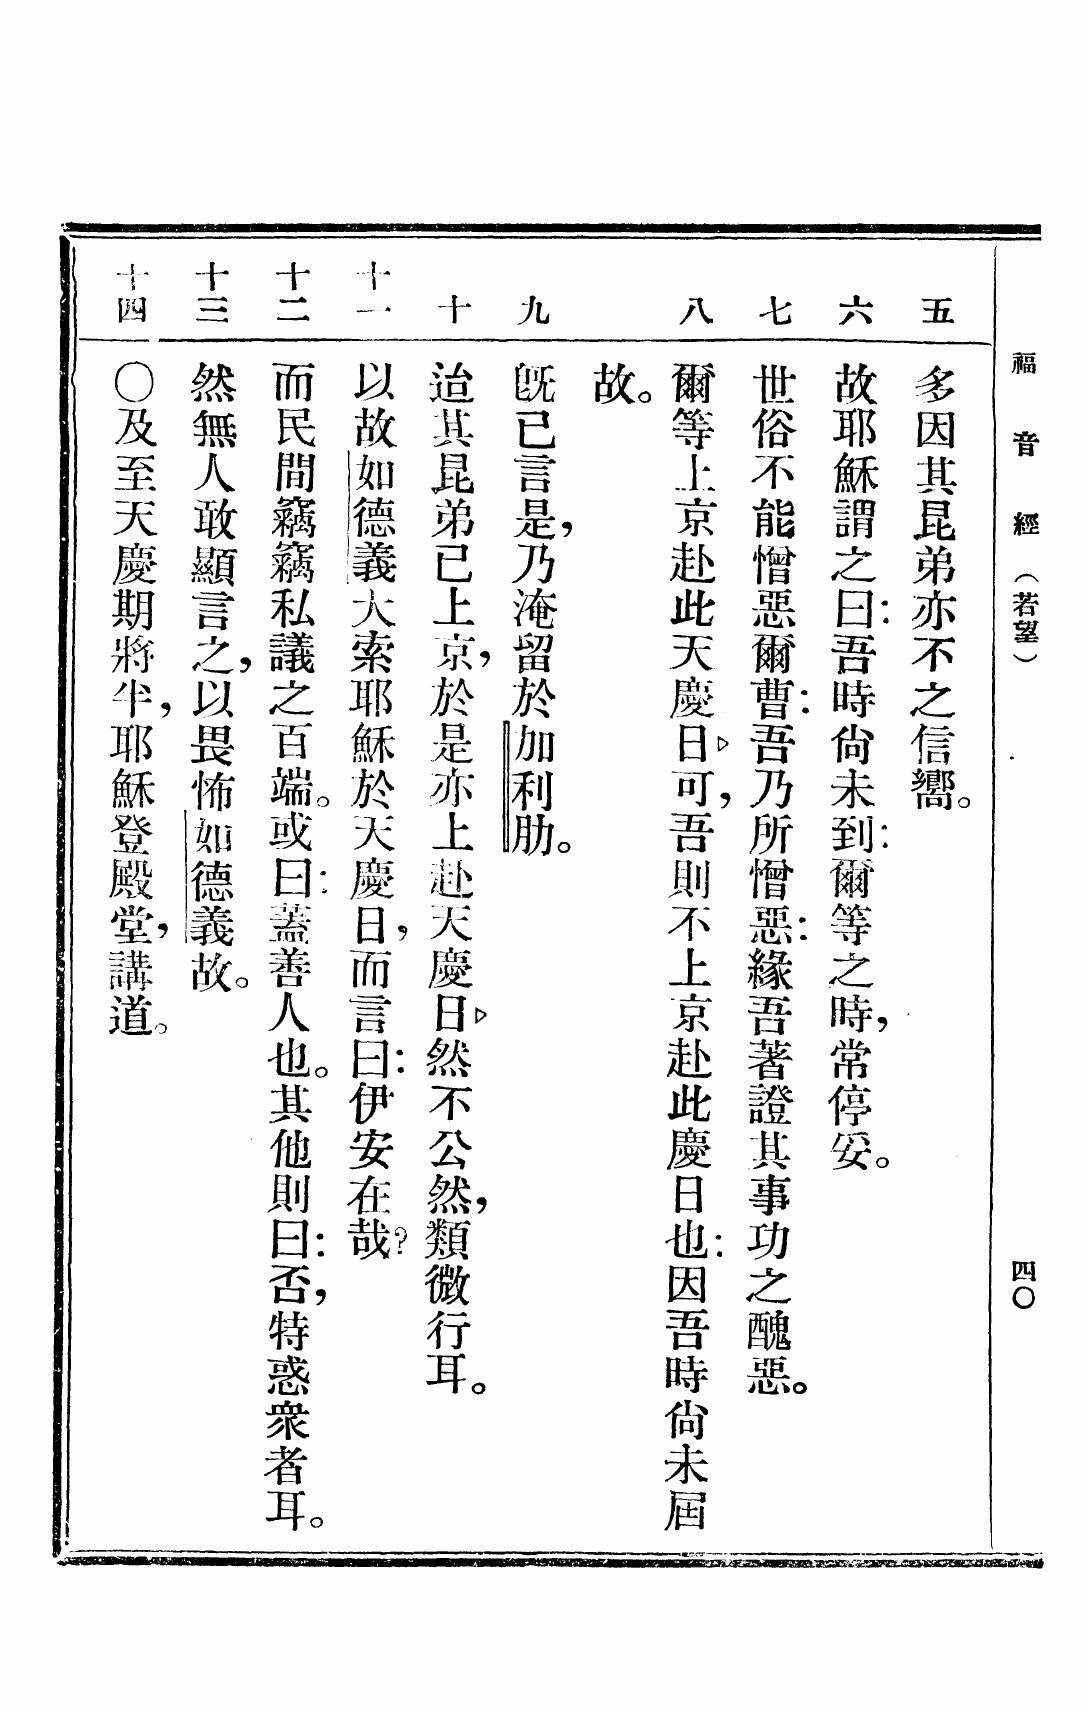 福音經（若望） 四〇
五 多因其昆弟亦不之信嚮。
六 故耶穌謂之曰：吾時尙未到：爾等之時，常停妥。
七 世俗不能憎惡爾曹：吾乃所憎惡：緣吾著證其事功之醜惡。
八 爾等上京赴此天慶日▷可，吾則不上京赴此慶日也：因吾時尙未屆
故。
九 旣已言是，乃淹留於加利肋。
十 迨其昆弟已上京，於是亦上赴天慶日▷然不公然，類微行耳。
十一 以故如德義大索耶穌於天慶日，而言曰：伊安在哉？
十二 而民間竊竊私議之百端。或曰：蓋善人也。其他則曰：否，特惑衆者耳。
十三 然無人敢顯言之，以畏怖如德義故。
十四 〇及至天慶期將半，耶穌登殿堂，講道。